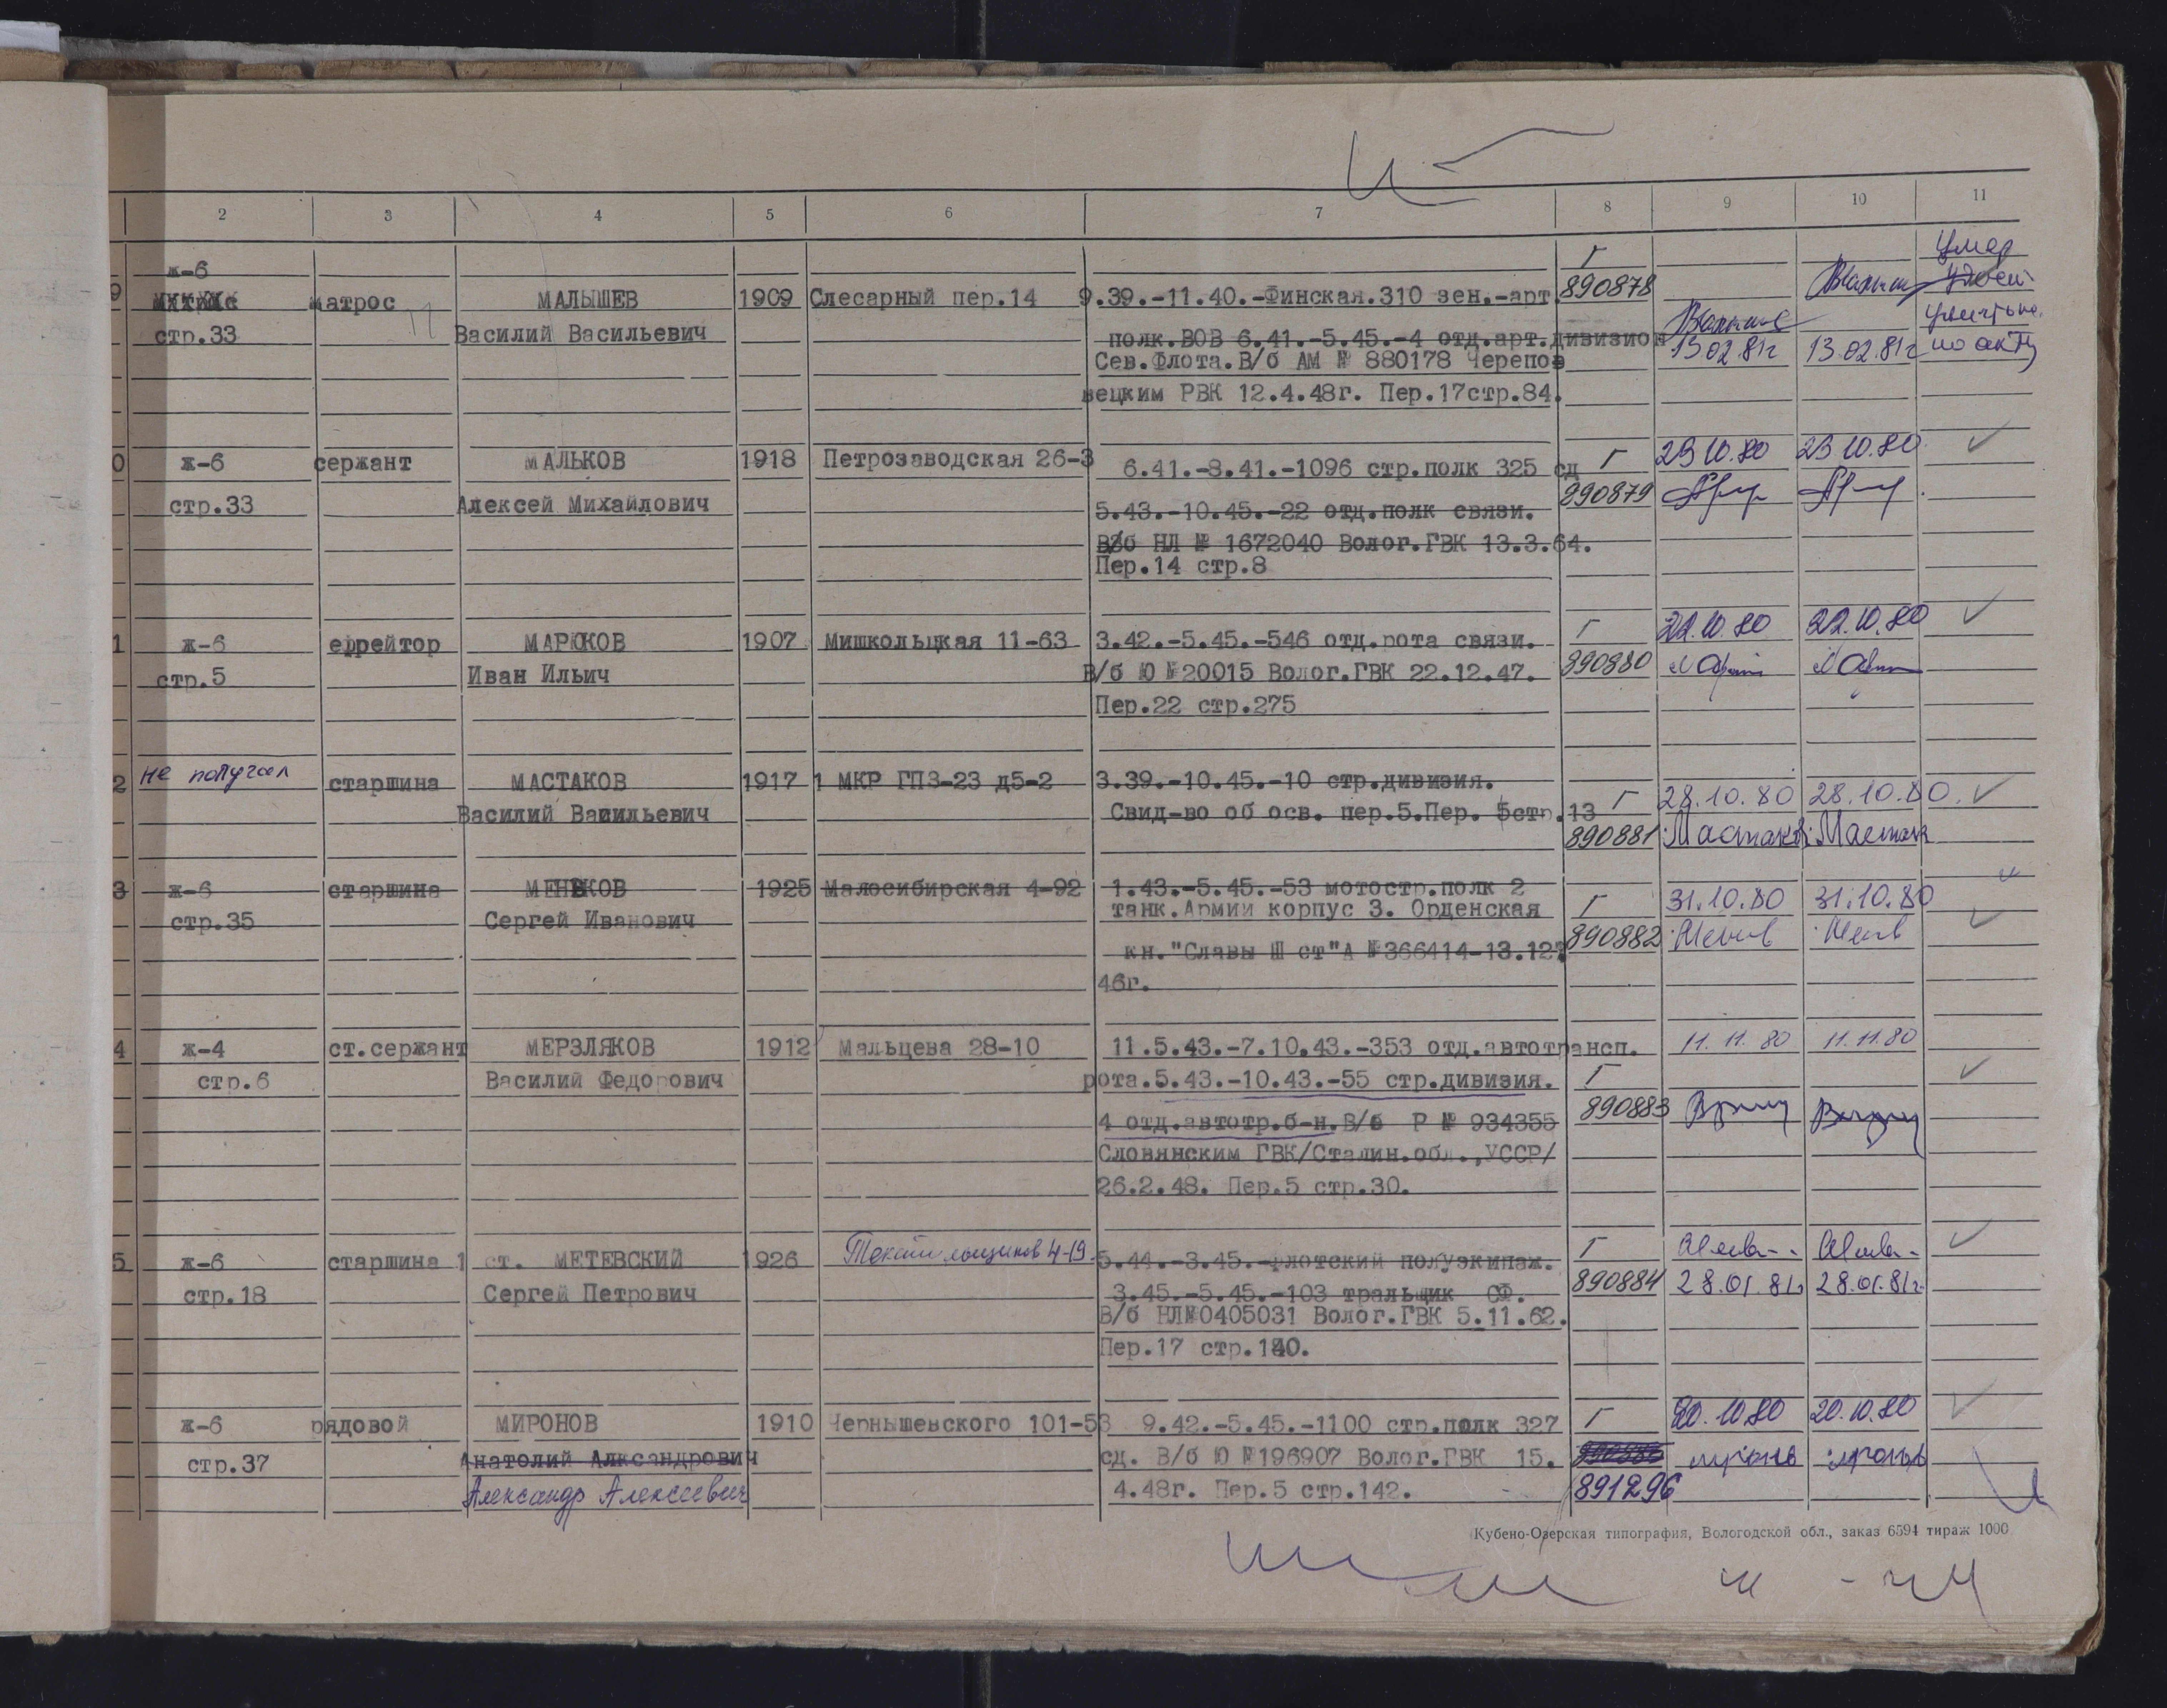 2 3 4 5 6 7 8 9 10 11
ж-6 Г Умер
9 матрос МАЛЫШЕВ 1909 Слесарный пер.14 9.39.-11.40.-Финская.310 зен.-арт. 890878
стр.33 Василий Васильевич полк.ВОВ 6.41.-5.45.-4 отд.арт.дивизион
Сев.Флота.В/б АМ № 880178 Черепов 13.02.81г 13.02.81г по акту
вецким РВК 12.4.48г. Пер.17стр.84.
0 ж-6 сержант МАЛЬКОВ 1918 Петрозаводская 26-3 6.41.-8.41.-1096 стр.полк 325 сд Г 23 10.80 23 10.80
стр.33 Алексей Михайлович 5.43.-10.45.-22 отд.полк связи. 890879
В/б НЛ № 1672040 Волог.ГВК 13.3.64.
Пер.14 стр.8
1 ж-6 ефрейтор МАРЮКОВ 1907 Мишкольцкая 11-63 3.42.-5.45.-546 отд.рота связи. Г 22.10.80 22.10.80
стр.5 Иван Ильич В/б Ю №20015 Волог.ГВК 22.12.47. 890880
Пер.22 стр.275
2 не получал старшина МАСТАКОВ 1917 1 МКР ГПЗ-23 д5-2 3.39.-10.45.-10 стр.дивизия.
Василий Васильевич Свид-во об осв. пер.5.Пер. 5стр.13 Г 28.10.80 28.10.80.
890881 Мастаков Мастак
3 ж-6 старшина МЕНЬКОВ 1925 Малосибирская 4-92 1.43.-5.45.-53 мотостр.полк 2
стр.35 Сергей Иванович танк.Армии корпус 3. Орденская Г 31.10.80 31.10.80
кн."Славы Ш ст"А №366414-13.12. 890882
46г.
4 ж-4 ст.сержант МЕРЗЛЯКОВ 1912 Мальцева 28-10 11.5.43.-7.10.43.-353 отд.автотрансп. 11.11.80 11.11.80
стр.6 Василий Федорович рота.5.43.-10.43.-55 стр.дивизия. Г
4 отд.автотр.б-н.В/б Р № 934355 890883
Словянским ГВК/Сталин.обл.,УССР/
26.2.48. Пер.5 стр.30.
5 ж-6 старшина 1 ст. МЕТЕВСКИЙ 1926 Текстильщиков 4-19 5.44.-3.45.-флотский полуэкипаж. Г
стр.18 Сергей Петрович 3.45.-5.45.-103 тральщик СФ. 890884 28.01.81г 28.01.81г.
В/б НЛ№0405031 Волог.ГВК 5.11.62.
Пер.17 стр.140.
ж-6 рядовой МИРОНОВ 1910 Чернышевского 101-53 9.42.-5.45.-1100 стр.полк 327 Г 20.10.80 20.10.80
стр.37 Анатолий Алксандрович сд. В/б Ю №196907 Волог.ГВК 15.
Александр Алексеевич 4.48г. Пер.5 стр.142. 891296
Кубено-Озерская типография, Вологодской обл., заказ 6594 тираж 1000